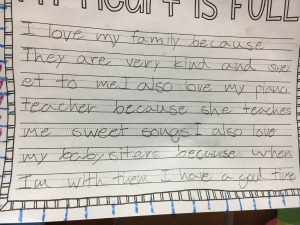 MY HEART IS FULL
I love my family because
They are very kind and swe
et to me.I also love my piano
teacher because she teaches
me sweet songs.I also love
my baby siters because when
I'm with them I have a good time